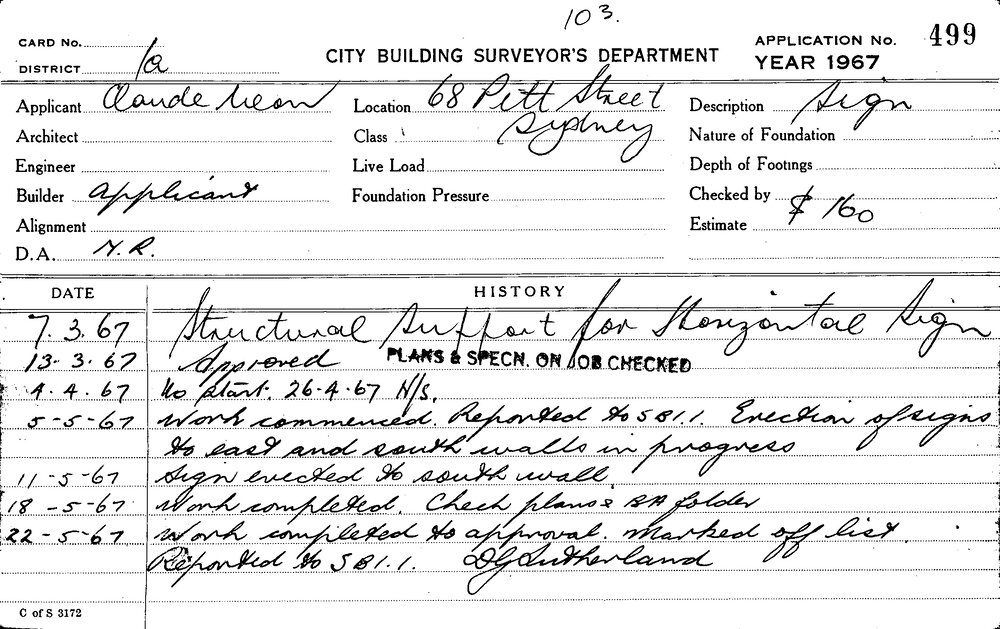 103.
CARD No.
CITY BUILDING SURVEYOR'S DEPARTMENT
APPLICATION No. 499
DISTRICT 1a
YEAR 1967
Applicant Claude Neon
Location 68 Pitt Street
Sydney
Description Sign
Architect
Class
Nature of Foundation
Engineer
Live Load
Depth of Footings
Builder Applicant
Foundation Pressure
Checked by
Alignment
Estimate $160
D.A. N.R.
DATE HISTORY
7.3.67 Structural Support for Horizontal Sign
13.3.67 Approved PLANS & SPECN. ON JOB CHECKED
4.4.67 No start. 26.4.67 N/S.
5-5-67 Work commenced. Reported to SB1.1. Erection of signs
to east and south walls in progress
11-5-67 Sign erected to south wall.
18-5-67 Work completed. Check plans & BA folder
22-5-67 Work completed to approval. Marked off list.
Reported to SB1.1. DGSutherland
C of S 3172